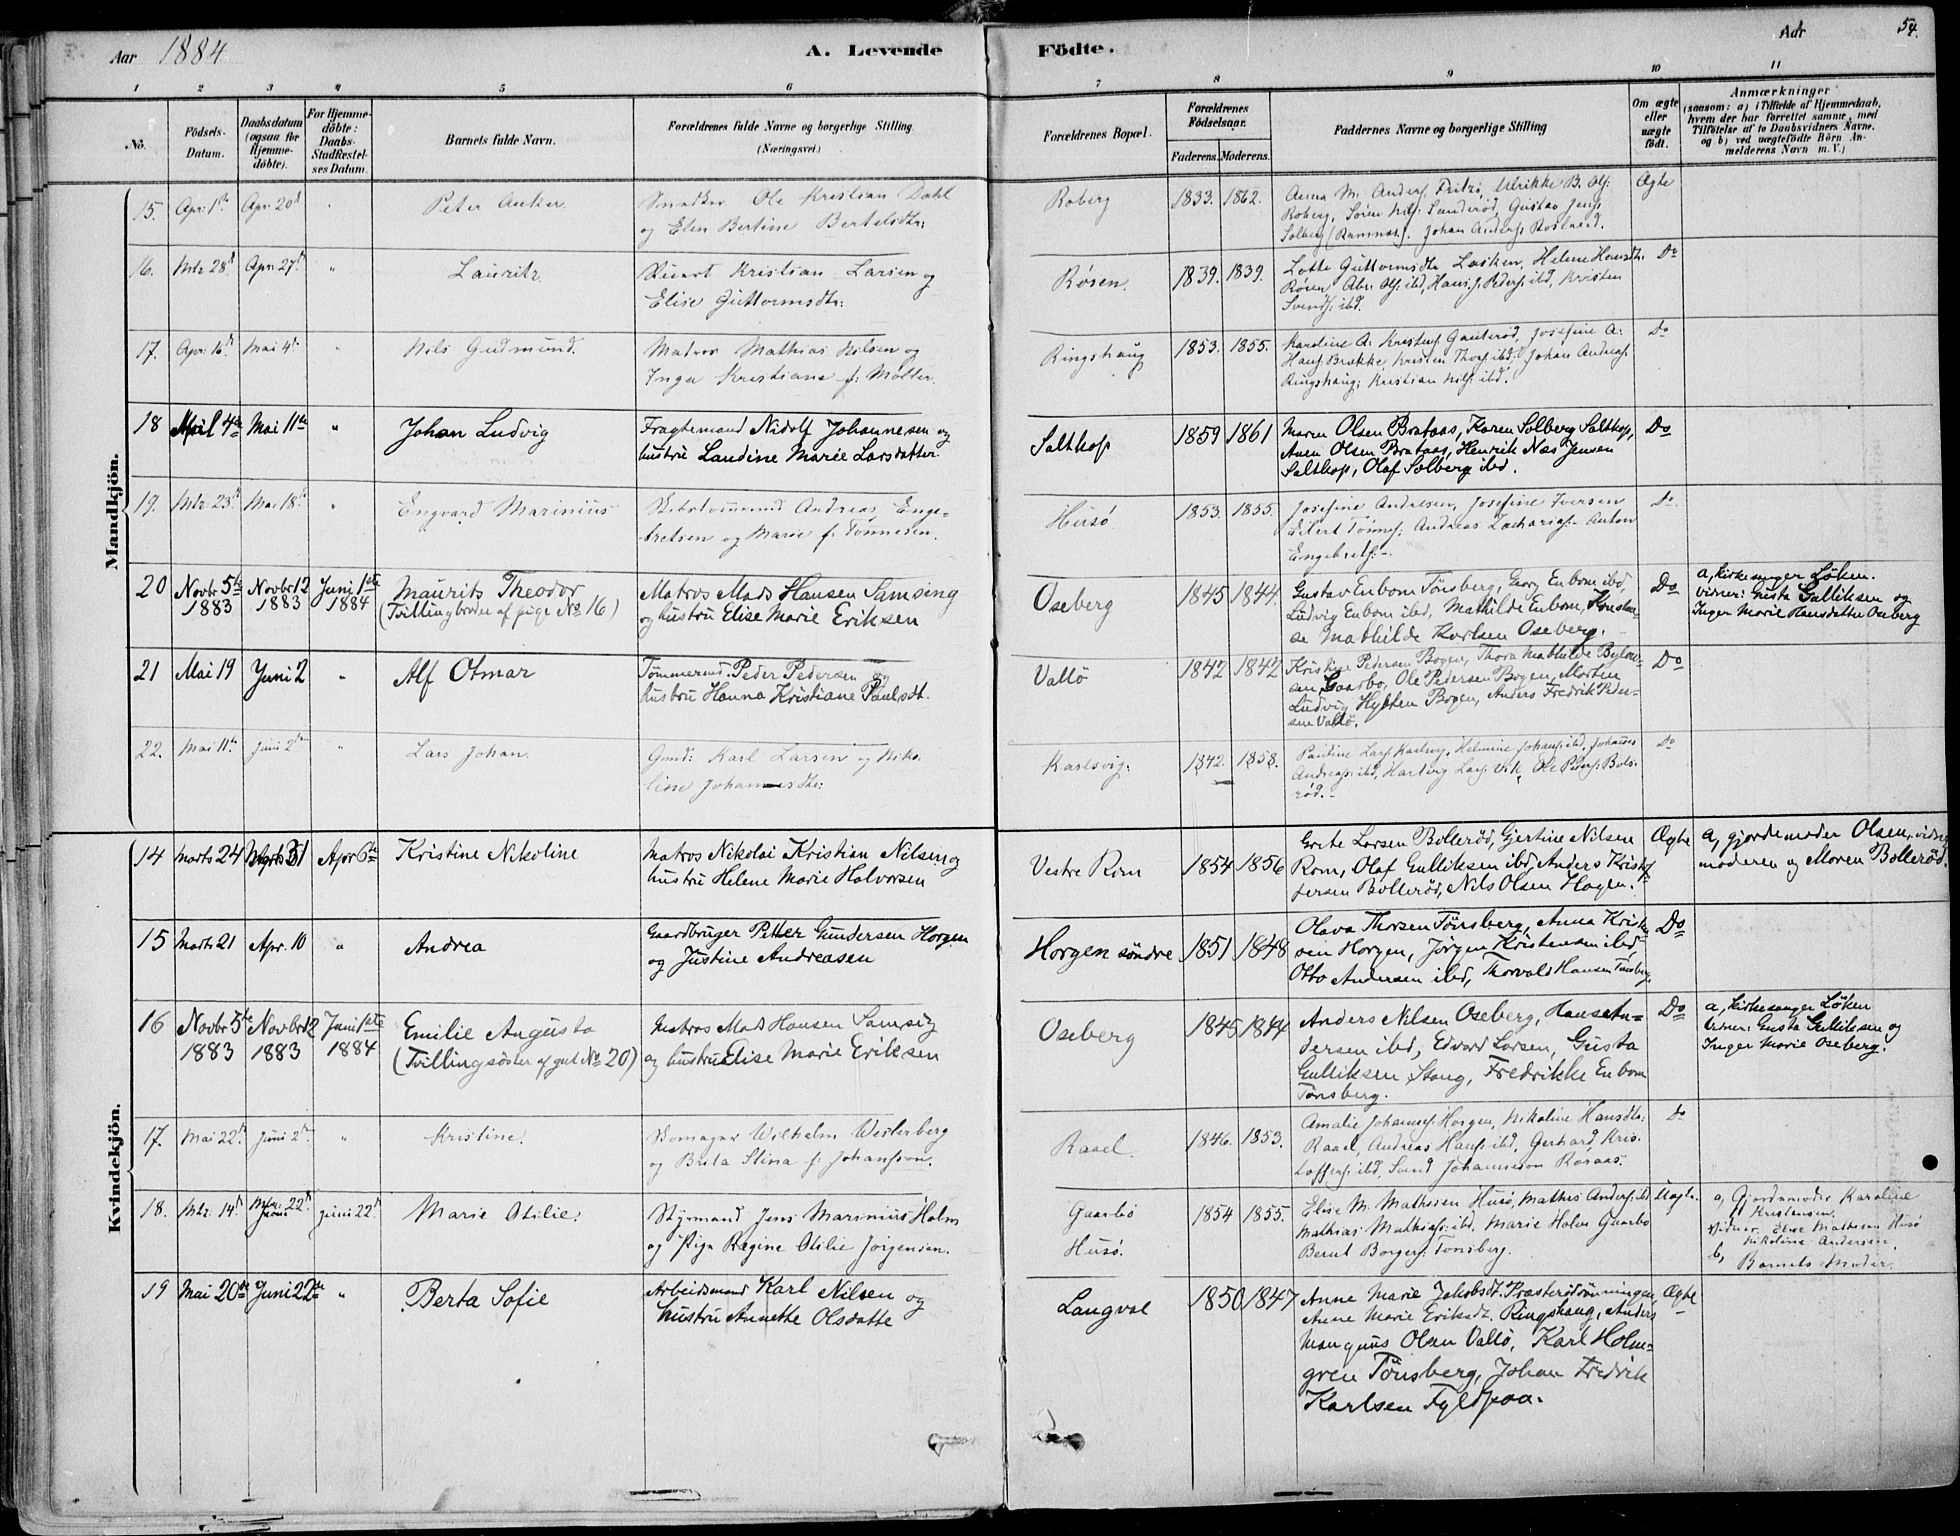 Aar 1884 A. Levende Födte. Aar 54.
1 2 3 4 5 6 7 8 9 10 11
No. Födsels-Datum. Daabsdatum (ogsaa for Hjemmedöbte). For Hjemmedöbte: Daabs-Stadfestelses Datum. Barnets fulde Navn. Forældrenes fulde Navne og borgerlige Stilling (Næringsvei) Forældrenes Bopæl. Forældrenes Födselsaar. Faderens. Moderens. Faddernes Navne og borgerlige Stilling Om ægte eller uægte födt. Anmærkninger (saasom: a) i Tilfælde af Hjemmedaab, hvem der har forrettet samme, med Tilföielse af to Daabsvidners Navne, og b) ved uægtefödte Börn Anmelderens Navn m. V.)
Mandkjön.
15. Apr: 1ste Apr: 20d " Peter Anker. Smedker Ole Kristian Dahl
og Elen Bertine Bertelsdtr:
Roberg 1833. 1862. Anna M. Anders: Fritzö, Ulrikke B. Ols:
Roberg, Sören Nils: Sanderöd, Gustav Jens:
Solberg (Ramnæs). Johan Anders:
Ægte
16. Mtz 28d Apr: 27d " Lauritz Kristian Larsen og
Elise Guttormsdtr:
Røsen. 1839. 1839. Lotte Guttormsdtr Helene Hansdtr.
Røsen Abr: Ols: ibd, Hans J. Peders: ibd, Kristen
Svends: ibd. Do
17. Apr: 16d Mai 4de " Nils Gudmund. Matros Mathias Nilsen og
Inger Kristiane f: Møller.
Ringshaug 1853. 1855. Karoline A. Kristens: Gauteröd, Josefine A:
Hans: Brække, Kristen Thors: ibd: Johan Andreas:
Ringshaug; Kristian Nils: ibd. Do
18 April 4de Mai 11te " Johan Ludvig Fragtemand Nidolf Johannesen og
hustru Laudine Marie Larsdatter.
Saltkop 1859 1861 Maren Olsen Brataas, Karen Solberg Saltkop,
Anen Olsen Brataas, Henrik Næs Jensen
Saltkop, Olaf Solberg ibd. Do
19. Mtz 23d Mai 18d " Engvard Marinius Andreas Enge-
bretsen og Marie f: Tönnesen.
Husö 1853. 1855. Josefine Andresen, Josefine Iversen
Eilert Tönnes: Andreas Zacharias: Anton
Engebrets: Do
20 Novbr 5te 1883 Novbr 12 1883 Juni 1ste 1884 Maurits Theodor
(Tvillingbroder af pige No 16)
Matros Mads Hansen Samsing
og hustru Elise Marie Eriksen
Oseberg 1845 1844. Gustav Enbom Tönsberg, Georg Enbom ibd,
Ludvig Enbom ibd, Mathilde Enbom, Konstan-
se Mathilde Karlsen Oseberg. Do
a, kirkesanger Löken.
Vidner: Gusta Gulliksen og
Inger Marie Hansdatter Oseberg
21 Mai 19 Juni 2 " Alf Otmar Tömmermd. Peder Pedersen og
hustru Hanna Kristiane Paulsdt.
Vallö 1842 1842 Kristine Pedersen Bogen, Thora Mathilde
sen Gaarbo, Ole Pedersen Bogen, Morten
Ludvig Hybten Bogen, Anders Fredrik Peder-
sen Vallö. Do
22. Mai 11te Juni 2den " Lars Johan. Gmd: Karl Larsen og Niko-
line Johannesdtr:
Karlsvig. 1842. 1858. Pauline Lars: Karlsvig, Helmine Johans: ibd, Johannes
Andreas: ibd, Hartvig Lars: Vik, Ole Peders: Bols-
röd. Do
Kvindekjön.
14 Marts 24 Marts 31 Apr 6te Kristine Nikoline Matros Nikolai Kristian Nilsen og
hustru Helene Marie Halvorsen
Vestre Rom 1854 1856 Grete Larsen Bolleröd, Gjertine Nilsen
Rom, Olaf Gulliksen ibd, Anders Kristof-
fersen Bolleröd, Nils Olsen Hagen. Ægte
a, gjordemoder Olsen, vidner
moderen og Maren Bolleröd.
15 Marts 21 Apr. 10 " Andrea Gaardbruger Petter Gundersen Horgen
og Justine Andreasen
Horgen söndre 1851 1848 Olava Thorsen Tönsberg, Anna Kristen-
sen Horgen, Jörgen Kristensen ibd
Otto Andersen ibd, Thorvald Hansen Tönsberg. Do
16 Novbr 5te 1883 Novbr 12 1883 Juni 1ste 1884 Emilie Augusta
(Tvillingsöster af gut No 20)
Matros Mads Hansen Samsig
og hustru Elise Marie Eriksen
Oseberg 1845 1844 Anders Nilsen Oseberg, Hans An-
dersen ibd, Edvard Larsen, Gusta
Gulliksen Stang, Fredrikke Enbom
Tönsberg. Do
a, kirkesanger Löken
Vidner: Gusta Gulliksen og
Inger Marie Oseberg.
17. Mai 22d Juni 2d " Kristine. Skomager Wilhelm Westerberg
og Brita Stina f: Johansson.
Raael. 1846. 1853. Amalie Johannes: Horgen, Nikoline Hansdtr:
Raael, Andreas Hans: ibd, Gerhard Kris-
toffers: ibd. Svend Johannesson Röraas. Do
18. Mtz 14d Mtz: 22d Juni Juni 22d Marie Otilie. Styrmand Jens Marinius Holm
og Pige Regine Otilie Jörgensen.
Gaarbö
Husö. 1854 1855. Elise M. Mathesen Husö, Mathis Anders: ibd
Mathias Mathias: ibd, Marie Holm Gaarbo
Bernt Borgers: Tönsberg. Uægte.
a, Gjordemoder Karoline
Kristensen.
Vidner, Elise Mathesen Husö
Nikoline Andersen.
b, Barnets Moder.
19 Mai 20de Juni 22de " Berta Sofie Arbeidsmand Karl Nilsen og
hustru Annette Olsdatte
Langvol 1850 1847 Anne Marie Jakobsdt. Præsterödrönningen,
Anne Marie Eriksdt. Ringshaug, Anders
Mangnus Olsen Vallö, Karl Holm-
gren Tönsberg, Johan Fredrik
Karlsen Fyldpaa. Ægte